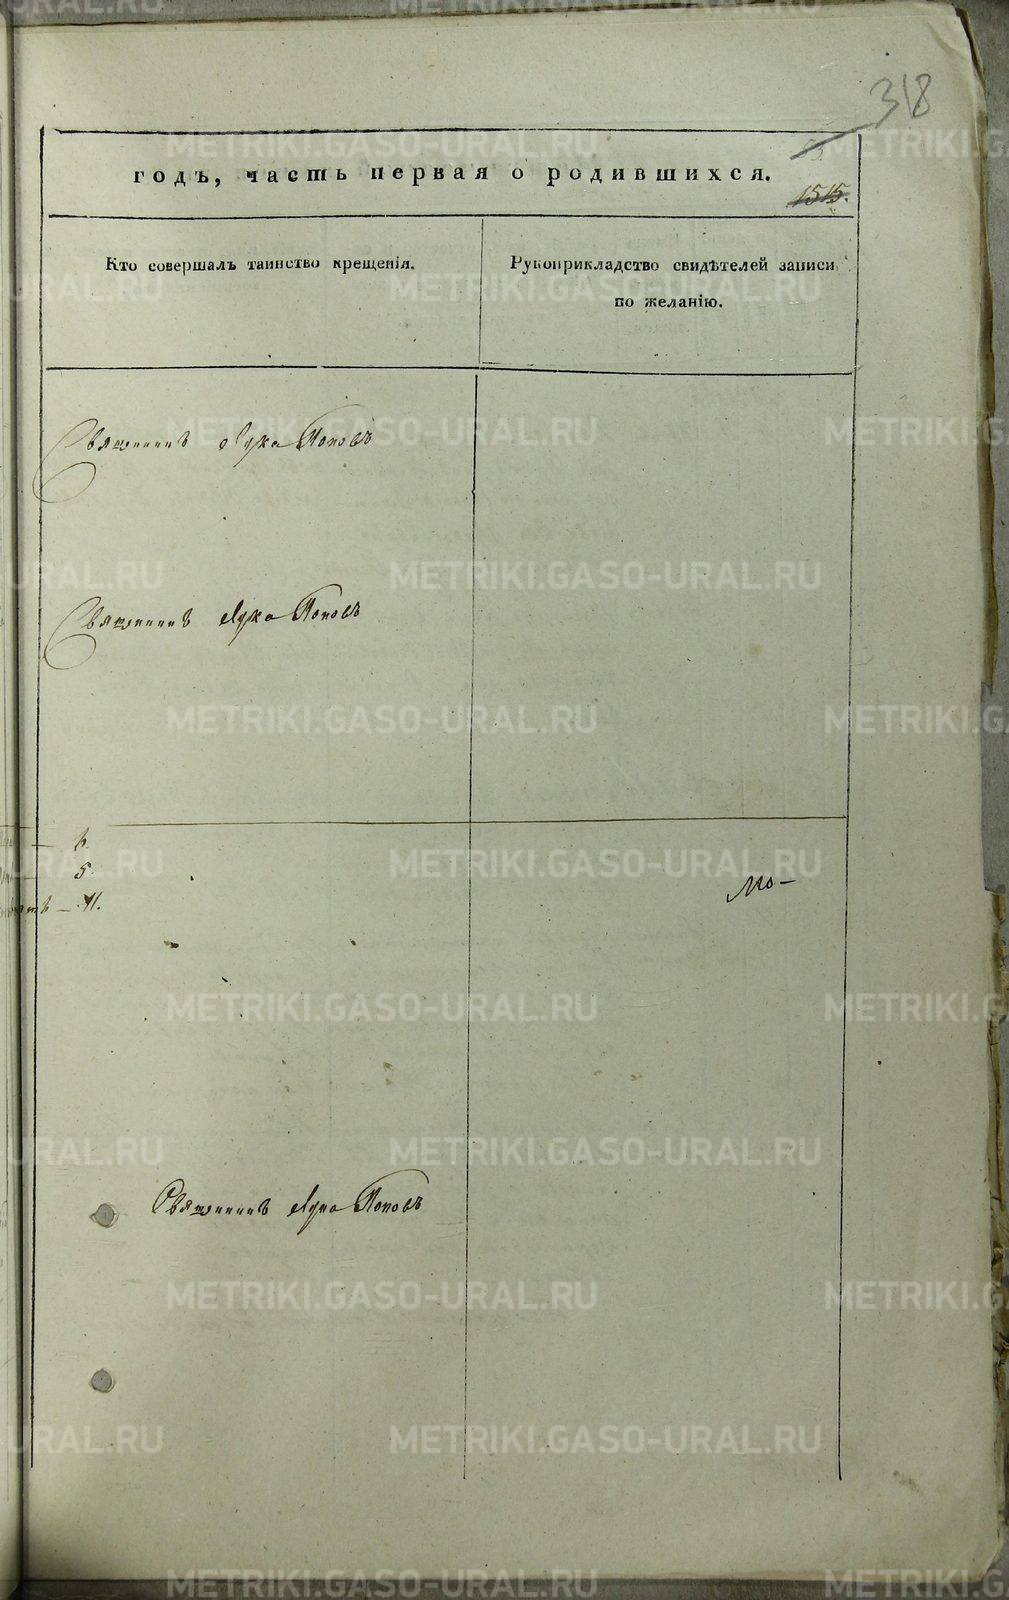 318
годъ, часть первая о родившихся.
1515.
Кто совершалъ таинство крещенія.
Рукоприкладство свидѣтелей записи
по желанію.
Священникъ Лука Поповъ
Священникъ Лука Поповъ
6.
5.
11.
Священникъ Лука Поповъ
METRIKI.GASO-URAL.RU